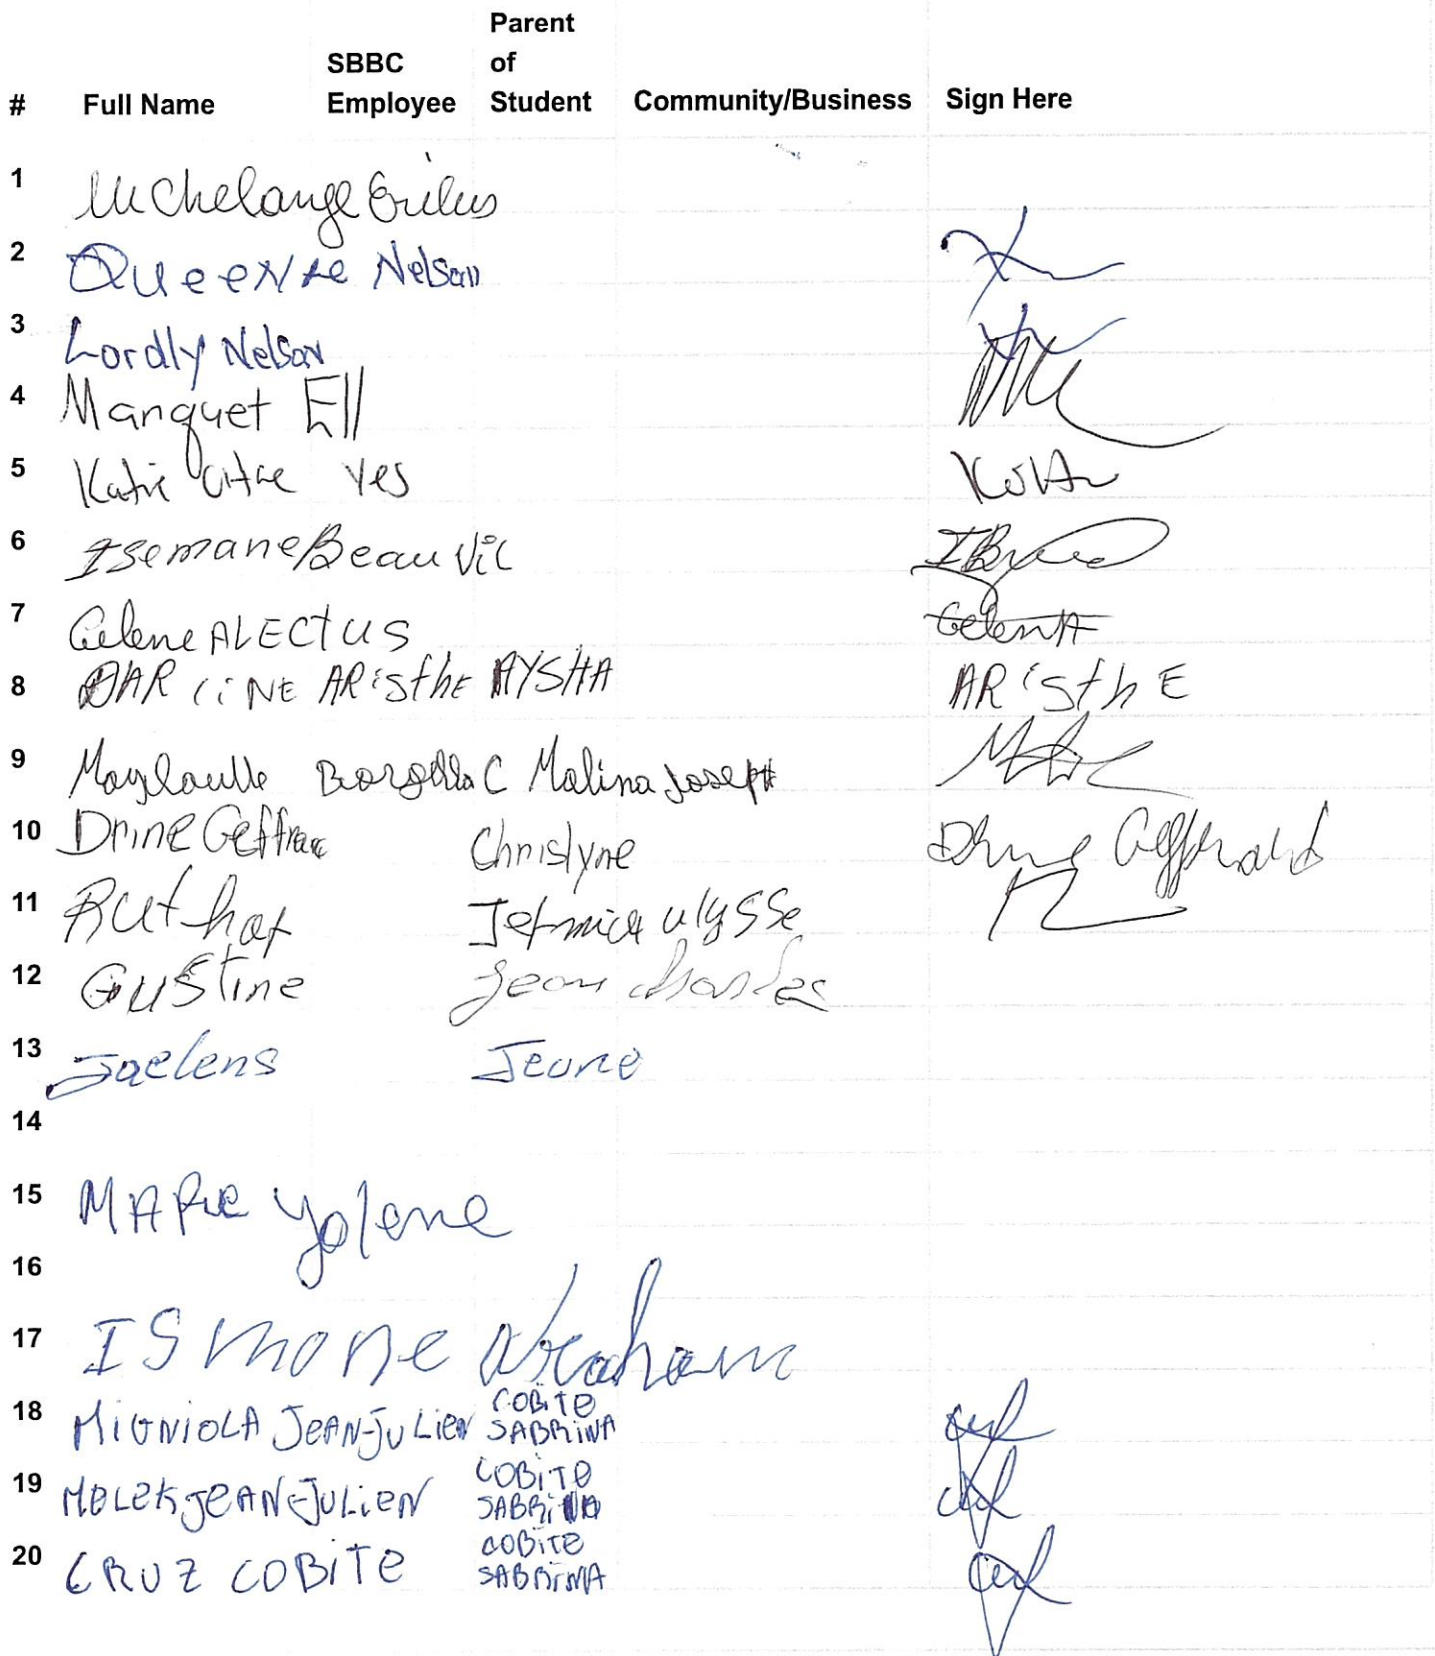 # Full Name SBBC Employee Parent of Student Community/Business Sign Here
1 Michelange Exilus
2 Queenie Nelson
3 Lordly Nelson
4 Manquet Ell
5 Katie Yes
6 Isemane Beauvil
7 Gelene ALECTUS
8 DARLINE ARisthE AYSHA ARisthE
9 C Malina Joseph
10 Drine Geffrac Christyne
11 Ulysse
12 Gustine Jean Charles
13 Jaelens Jeune
14
15 MARIE yolene
16
17 ISmone Abraham
18 MIGNIOLA JEAN-JULIEN COBITE SABRINA
19 MELEK JEAN-JULIEN COBITE SABRINA
20 CRUZ COBITE COBITE SABRINA